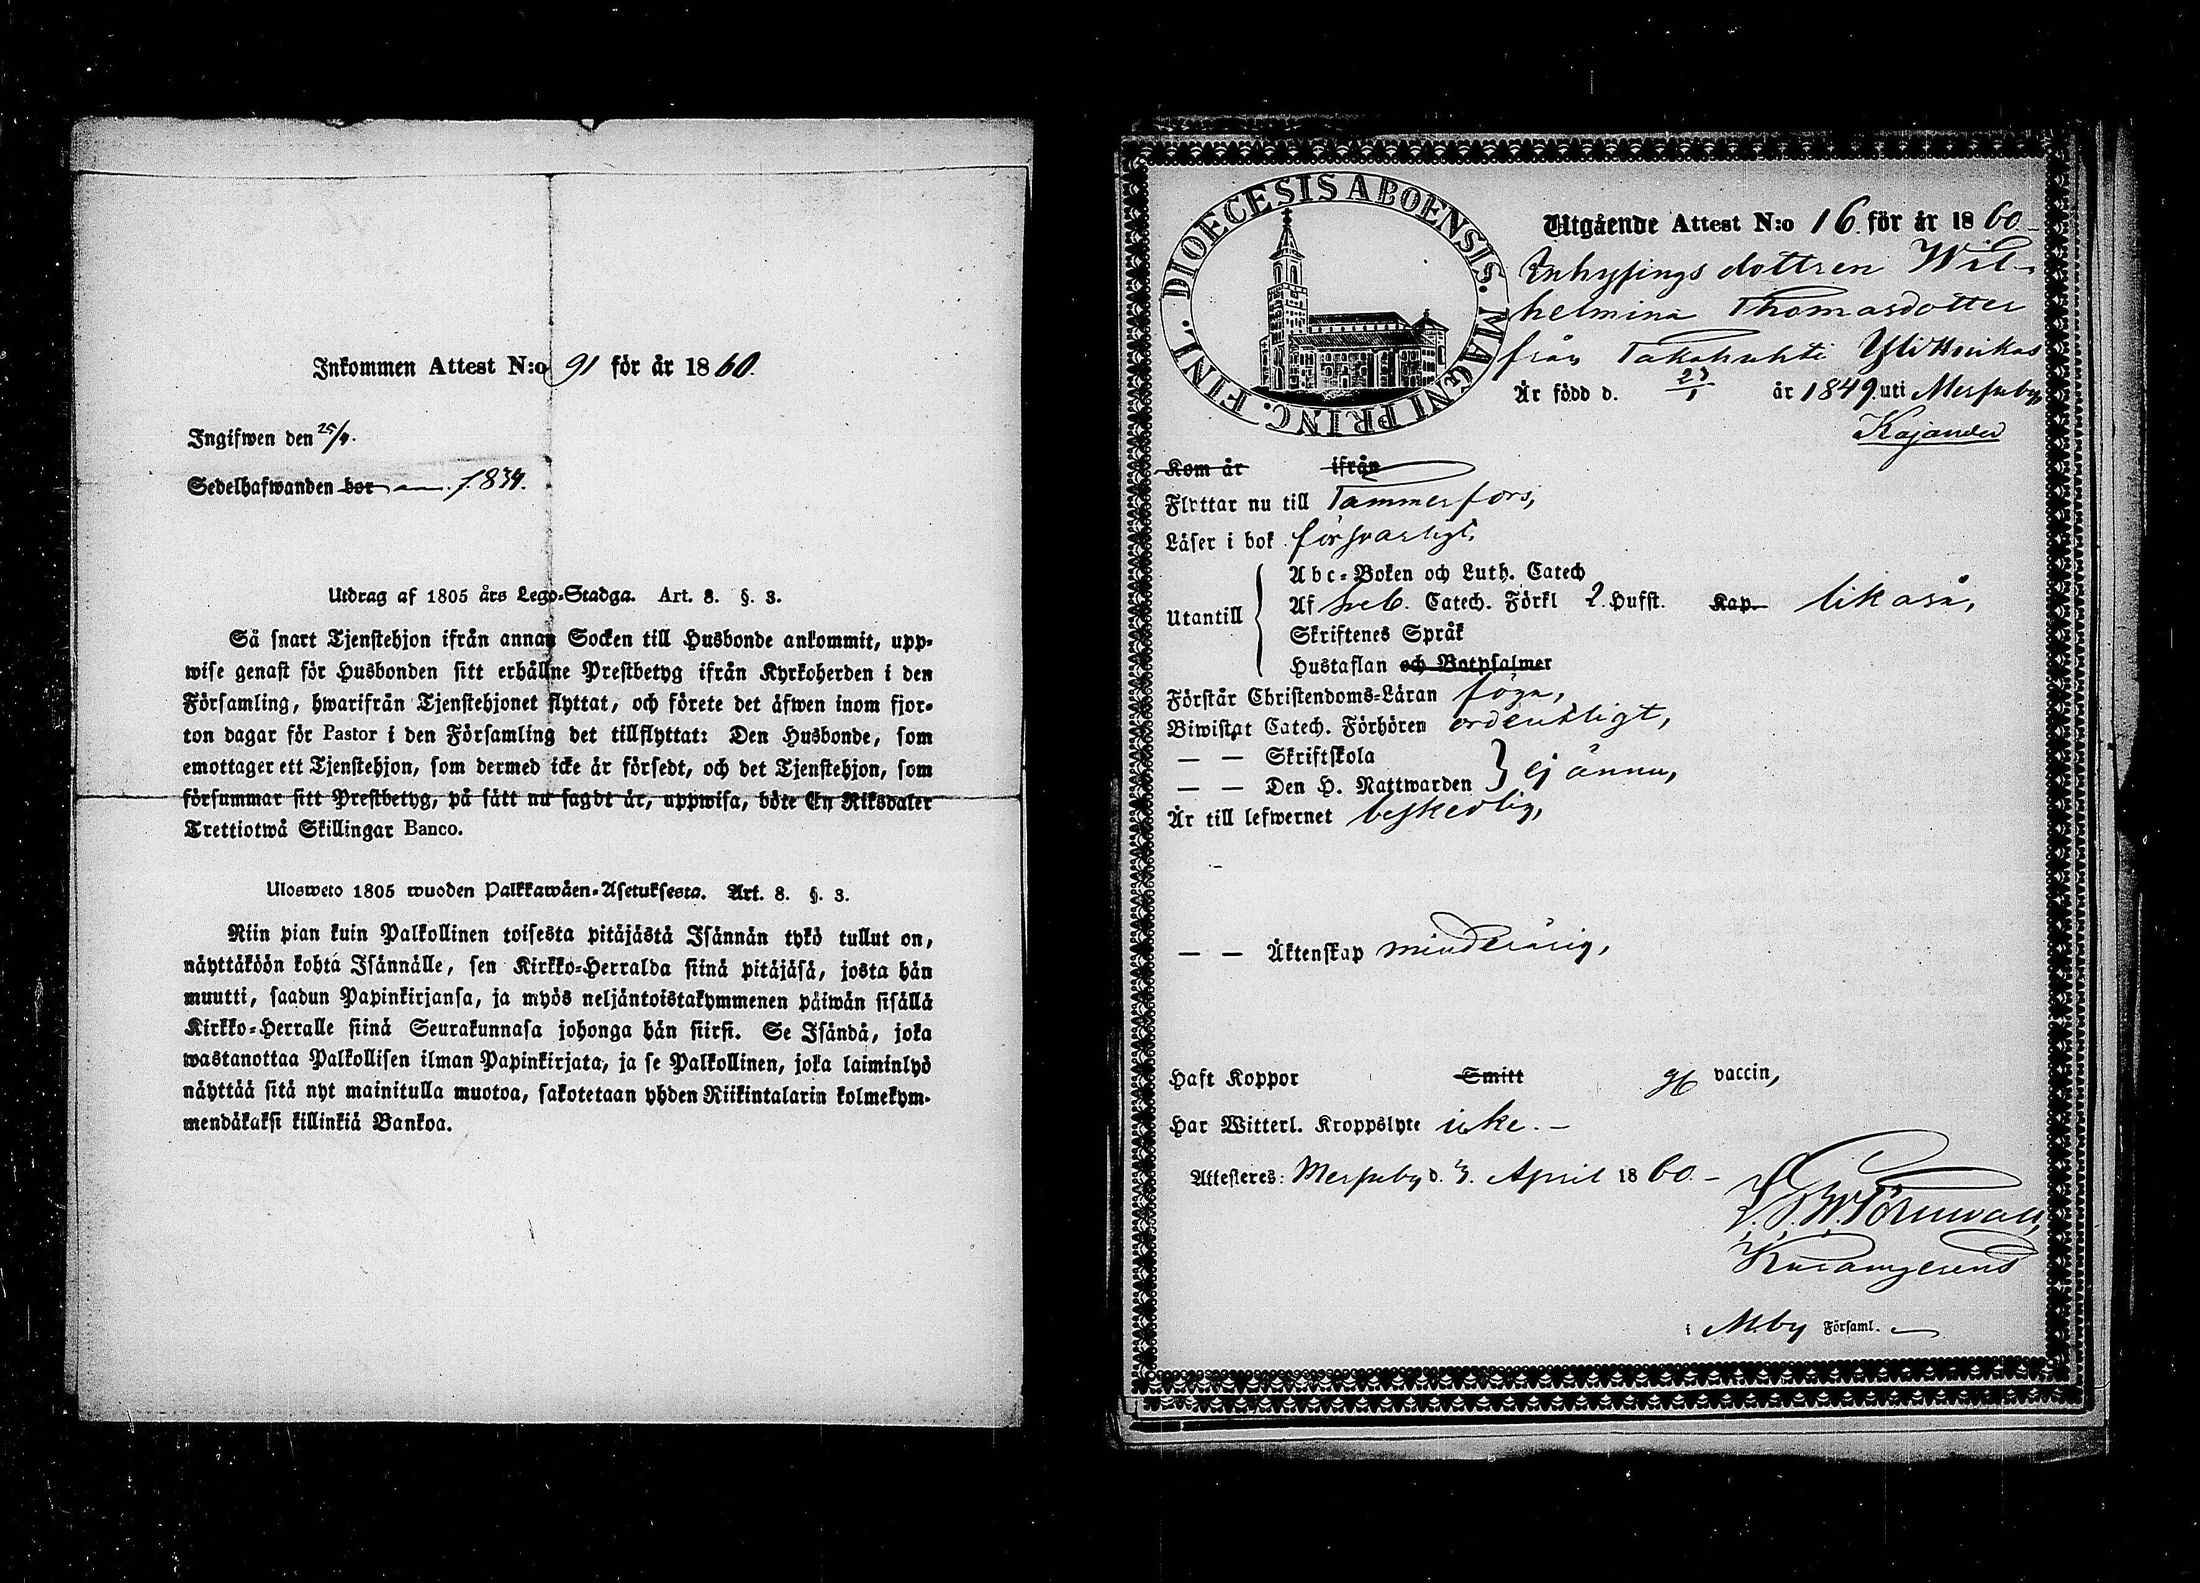 Inkommen Attest N:o 91 för år 1860.
Ingifwen den 25/4.
Sedelhafwanden bor f. 839.
Utdrag af 1805 års Lego-Stadga. Art. 8. §. 3.
Så snart Tjenstehjon ifrån annan Socken till Husbonde ankommit, upp-
wise genast för Husbonden sitt erhållne Prestbetyg ifrån Kyrkoherden i den
Församling, hwarifrån Tjenstehjonet flyttat, och förete det äfwen inom fjor-
ton dagar för Pastor i den Församling det tillflyttat: Den Husbonde, som
emottager ett Tjenstehjon, som dermed icke är försedt, och det Tjenstehjon, som
försummar sitt Prestbetyg, på sätt nu sagdt är, uppwisa, böte En Riksdaler
Trettiotwå Skillingar Banco.
Ulosweto 1805 wuoden Palkkawäen-Asetuksesta. Art. 8. §. 3.
Niin pian kuin Palkollinen toisesta pitäjästä Isännän tykö tullut on,
näyttäköön kohta Isännälle, sen Kirkko-Herralda siinä pitäjäsä, josta hän
muutti, saadun Papinkirjansa, ja myös neljäntoistakymmenen päiwän sisällä
Kirkko-Herralle siinä Seurakunnasa johonga hän siirsi. Se Isändä, joka
wastanottaa Palkollisen ilman Papinkirjata, ja se Palkollinen, joka laiminlyö
näyttää sitä nyt mainitulla muotoa, sakotetaan yhden Riikintalarin kolmekym-
mendäkaksi killinkiä Bankoa.
DIOECESIS ABOENSIS. MAGNI PRINC. FINL.
Utgående Attest N:o 16. för år 1860.
Inhysings dottren Wil-
helmina Thomasdotter
från Takahuhti
Är född d. 23/1 år 1849 uti Messuby
Kajander
Kom år ifrån
Flyttar nu till Tammerfors,
Läser i bok försvarligt,
Utantill
Abc-Boken och Luth. Catech
Af Sveb. Catech. Förkl 2. Hufst. Kap. likaså,
Skriftenes Språk
Hustaflan och Botpsalmer
Förstår Christendoms-Läran föga,
Biwistat Catech. Förhören ordentligt,
— — Skriftskola
— — Den H. Nattwarden } ej ännu,
Är till lefwernet beskedlig,
— — Äktenskap minderårig,
Haft Koppor Smitt vaccin,
Har Witterl. Kroppslyte icke. —
Attesteres: Messuby d. 3. April 1860. —
Törnwall,
i M:by Församl.